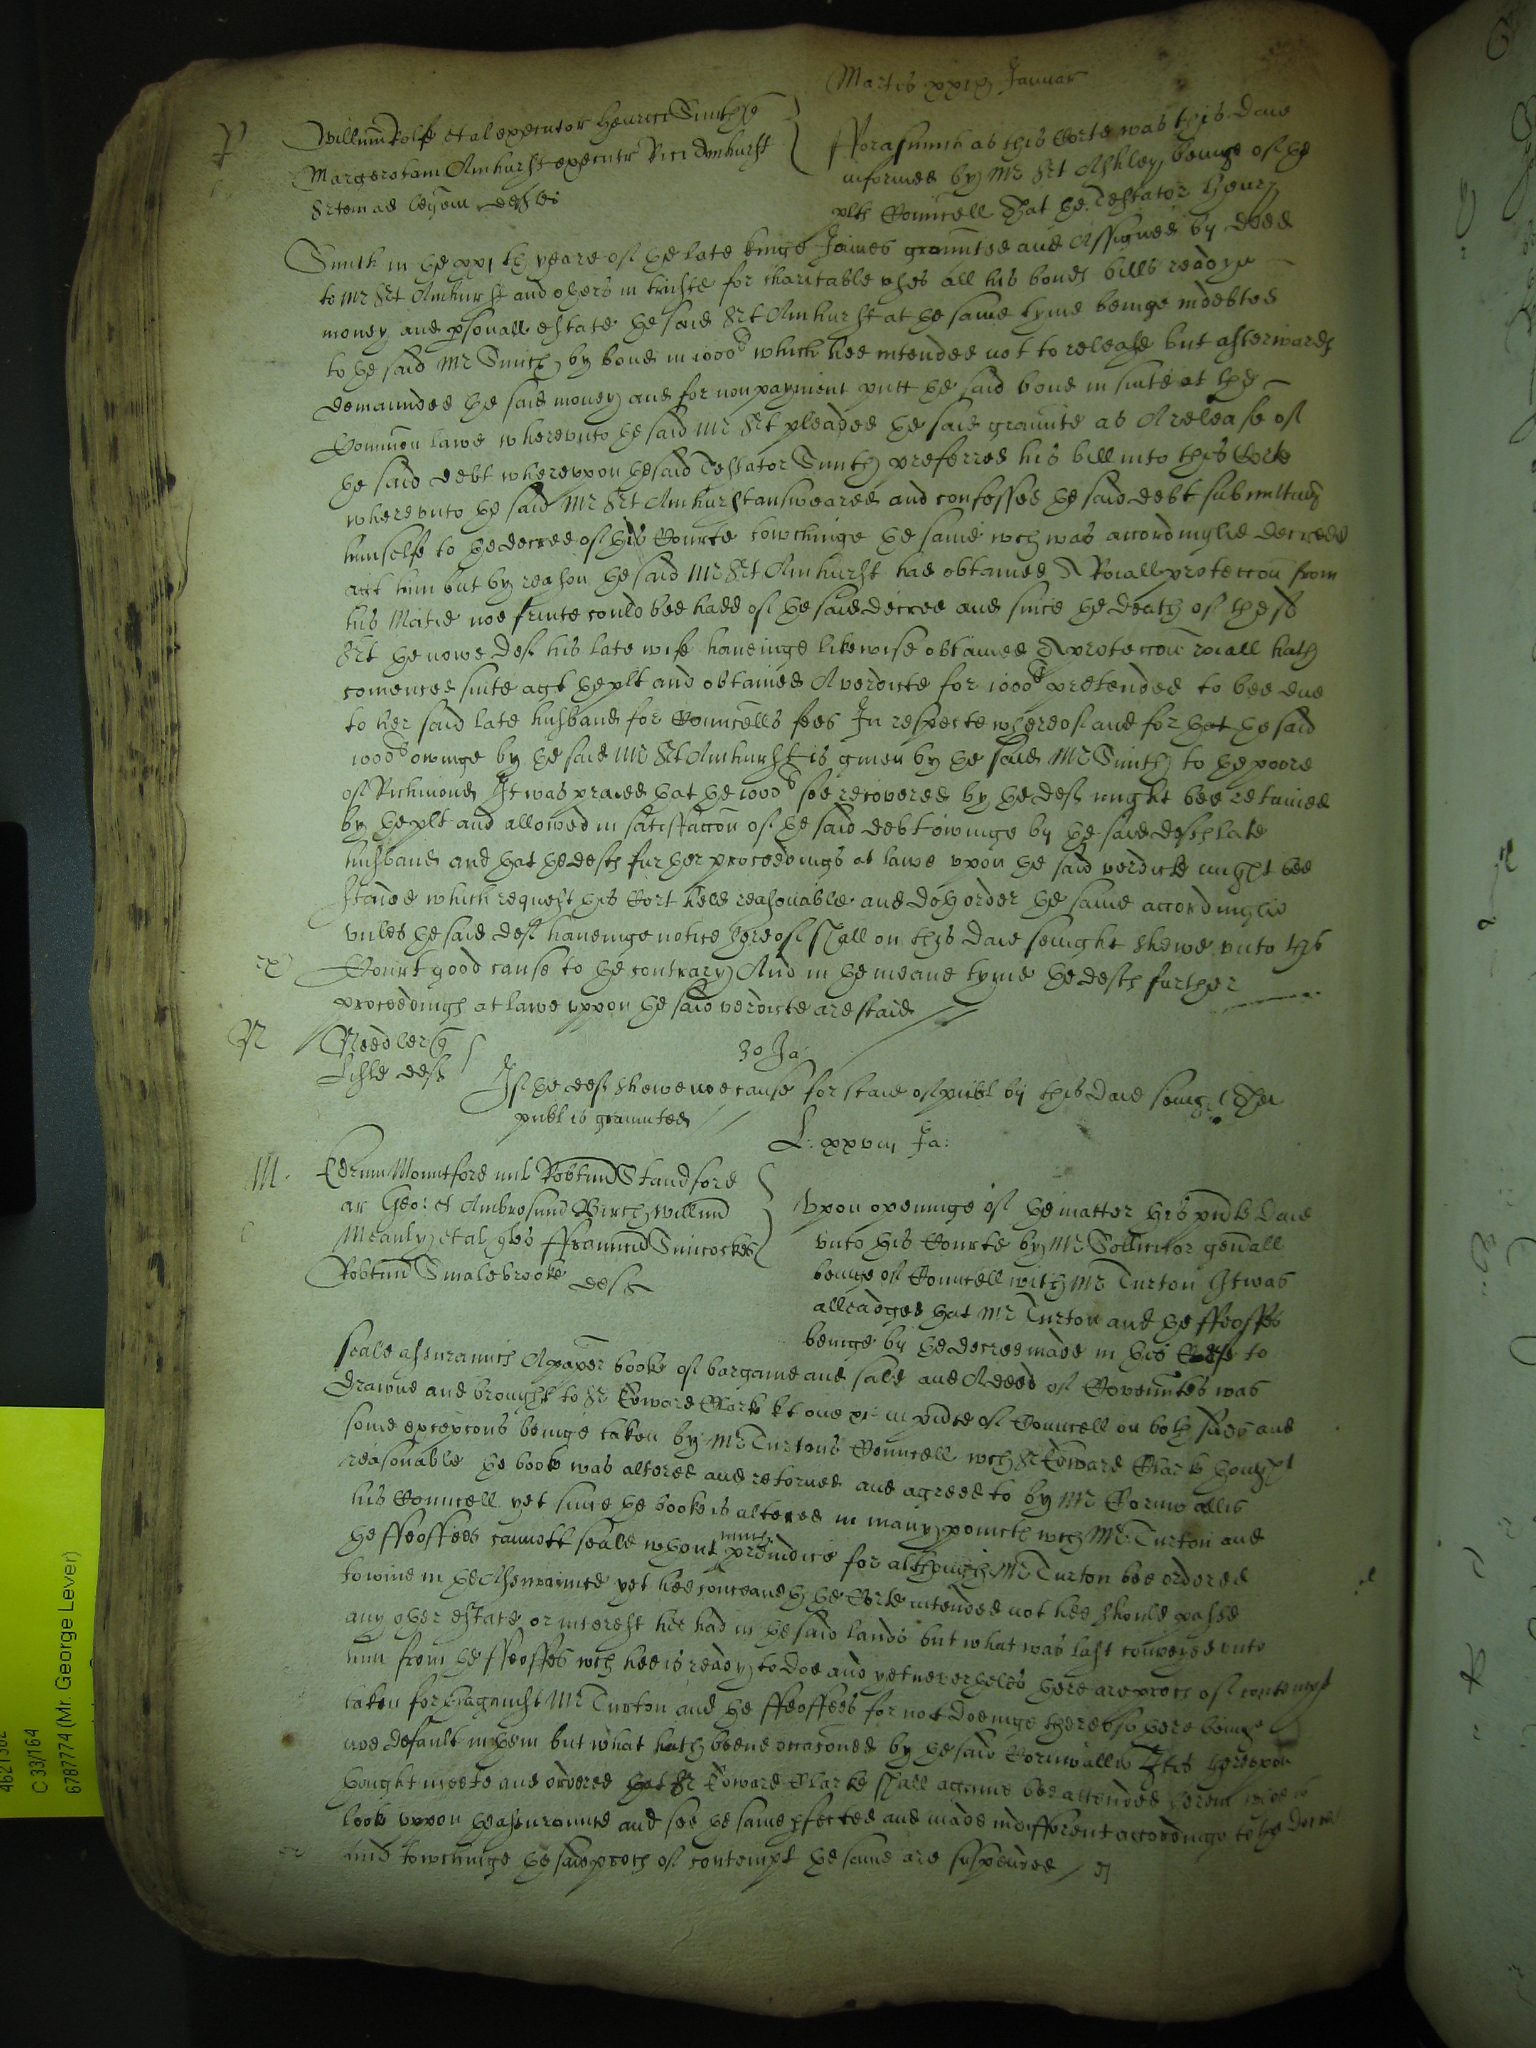 Martis xxix Januar
P
Willm Rolfe et al executor Henrici Smith qe
Margeretam Amhurst executr Rici Amhurst
Srtem ad legem deftes
Fforasmuch as this Corte was this daie
informed by Mr Srt Ashley beinge of the
plts Councell That the Testator Henry
Smith in the xxj th yeare of the late kinge James graunted and Assigned by deed
to Mr Srt Amhurst and others in truste for charitable vses all his bonds bills readye
money and psonall estate the said Srt Amhurst at the same tyme beinge indebted
to the said Mr Smith by bond in 1000l which hee intended not to release but afterwards
demaunded the said money and for nonpayment putt the said bond in suite at the
Common lawe wherevnto the said Mr Srt pleaded the said graunte as A release of
the said debt wherevpon the said Testator Smith preferred his bill into this Corte
wherevnto the said Mr Srt Amhurst answeared and confessed the said debt submitting
himselfe to the decree of this Courte towchinge the same wch was accordinglie decreed
agt him but by reason the said Mr Srt Amhurst had obtained A Roiall proteccon from
his Matie noe fruite could bee hadd of the said decree and since the death of the sd
Srt the nowe deft his late wife haueinge likewise obtained A proteccon roiall hath
comenced suite agt the plt and obtained A verdicte for 1000l pretended to bee due
to her said late husband for Councells fees In respecte whereof and for that the said
1000l owinge by the said Mr Srt Amhurst is giuen by the said Mr Smith to the poore
of Richmond It was praied that the 1000l soe recovered by the deft might bee retained
by the plt and allowed in satisfaccon of the said debt owinge by the said defts late
husband and that the defts further proceedings at lawe vpon the said verdicte might bee
staied which request this Cort held reasonable and doth order the same accordinglie
vnles the said deft haueinge notice hereof shall on this daie senight shewe vnto this
Court good cause to the contrary And in the meane tyme the defts further
proceedings at lawe vppon the said verdicte are staid
N
Needler q
Lisle deft
30 Ja
If the deft shewe noe cause for staie of publ by this daie seuig then
publ is graunted
L: xxviij Ja:
M.
Edrum Mountford mil Robtum Standford
ar Geo: et Ambrosium Birch Willum
Meanly et al qtes ffranncu Smicockes
Robtum Smalebrooke
defts
Vpon openinge of the matter this pnte daie
vnto this Courte by Mr Sollicitor genall
beinge of Councell with Mr Turton It was
alleadged that Mr Turton and the ffeoffes
beinge by the decree made in this to
seale assurannces A paper booke of bargaine and sale and A deed of Covenntes was
drawne and brought to Sr Edward Clarke kt one in pnce of Councell on both sides and
some excepcons beinge taken by Mr Turtons Councell wch Sr Edward Clarke thought
reasonable the booke was altered and retorned and agreed to by Mr Cornwallis
his Councell yet since the booke is altered in many poincts wch Mr Turton and
the ffeoffees cannott seale wthout much preiudice for although Mr Turton bee ordered
to ioine in the Assurannce yet hee conceaueth the Corte intended not hee should passe
any other estate or interest hee had in the said lands but what was last conveyed vnto
him from the ffeoffes wch hee is ready to doe and yet neverthelesse there are proces of contempt
taken forth against Mr Turton and the ffeoffees for not doeinge thereof there beinge
noe default in them but what hath beene occasoned by the said Cornwallis It is therevpon
thought meete and ordered that Sr Edward Clarke shall againe bee attended herein
looke vppon the assurannce and see the same pfected and made indifferent accordinge to the decree
And towchinge the said proces of contempt the same are suspended
4621302
C 33/164
6787774 (Mr. George Lever)